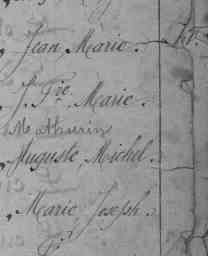 , Jean Marie.
, J. Pre. Marie.
Mathurin
, Auguste, Michel.
, Marie, Joseph.